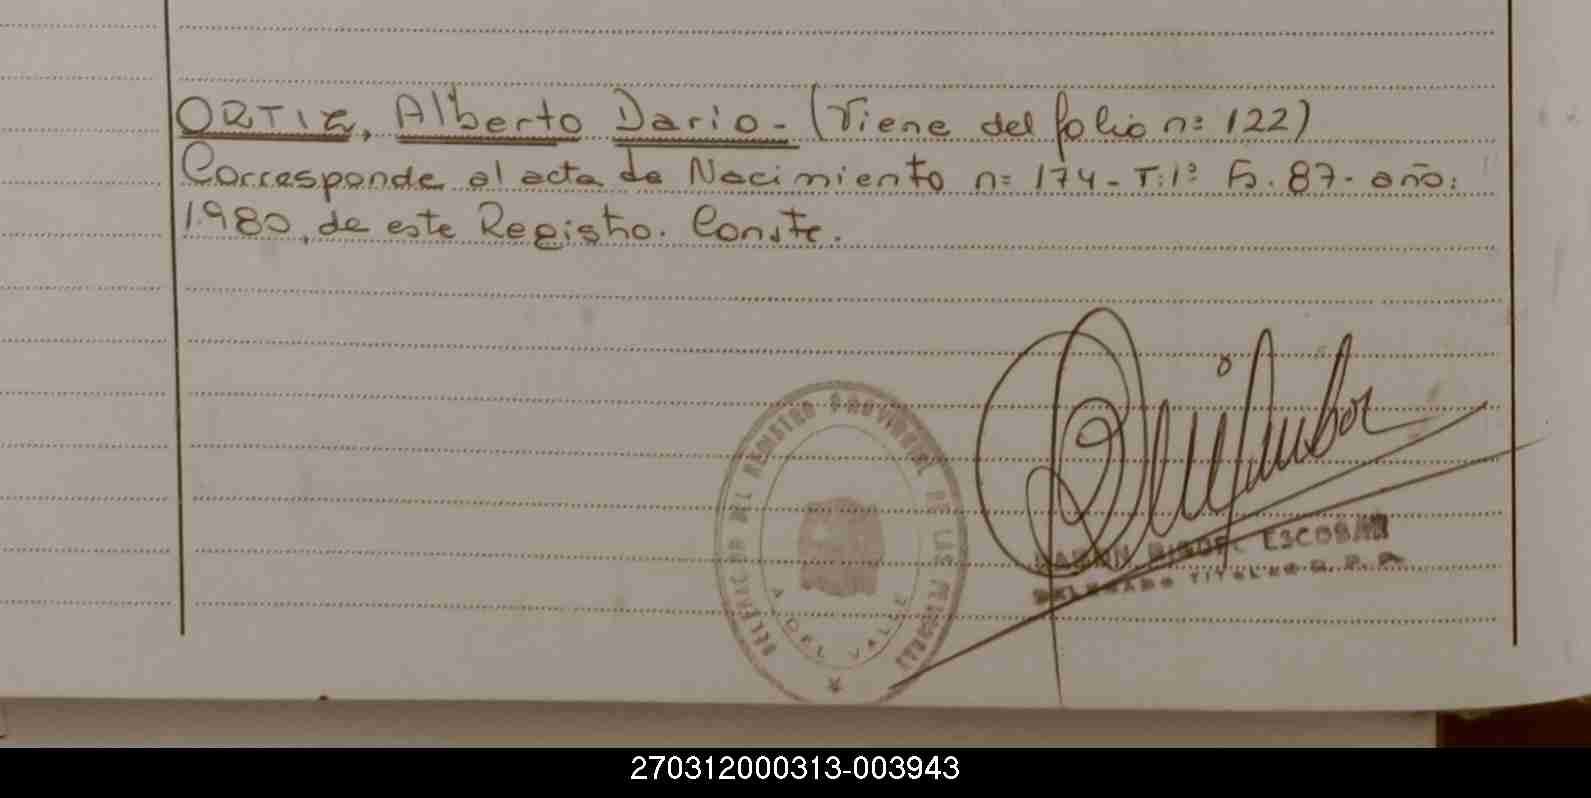 ORTIZ, Alberto Dario - (Viene del folio n: 122)
Corresponde al acta de Nacimiento n: 174 - T: 1º F. 87 - año:
1.980, de este Registro. Conste.
DELEGACION DEL REGISTRO PROVINCIAL DE LAS PERSONAS
A. DEL VALLE
ESCOBAR
DELEGADO TITULAR R. P. P.
270312000313-003943